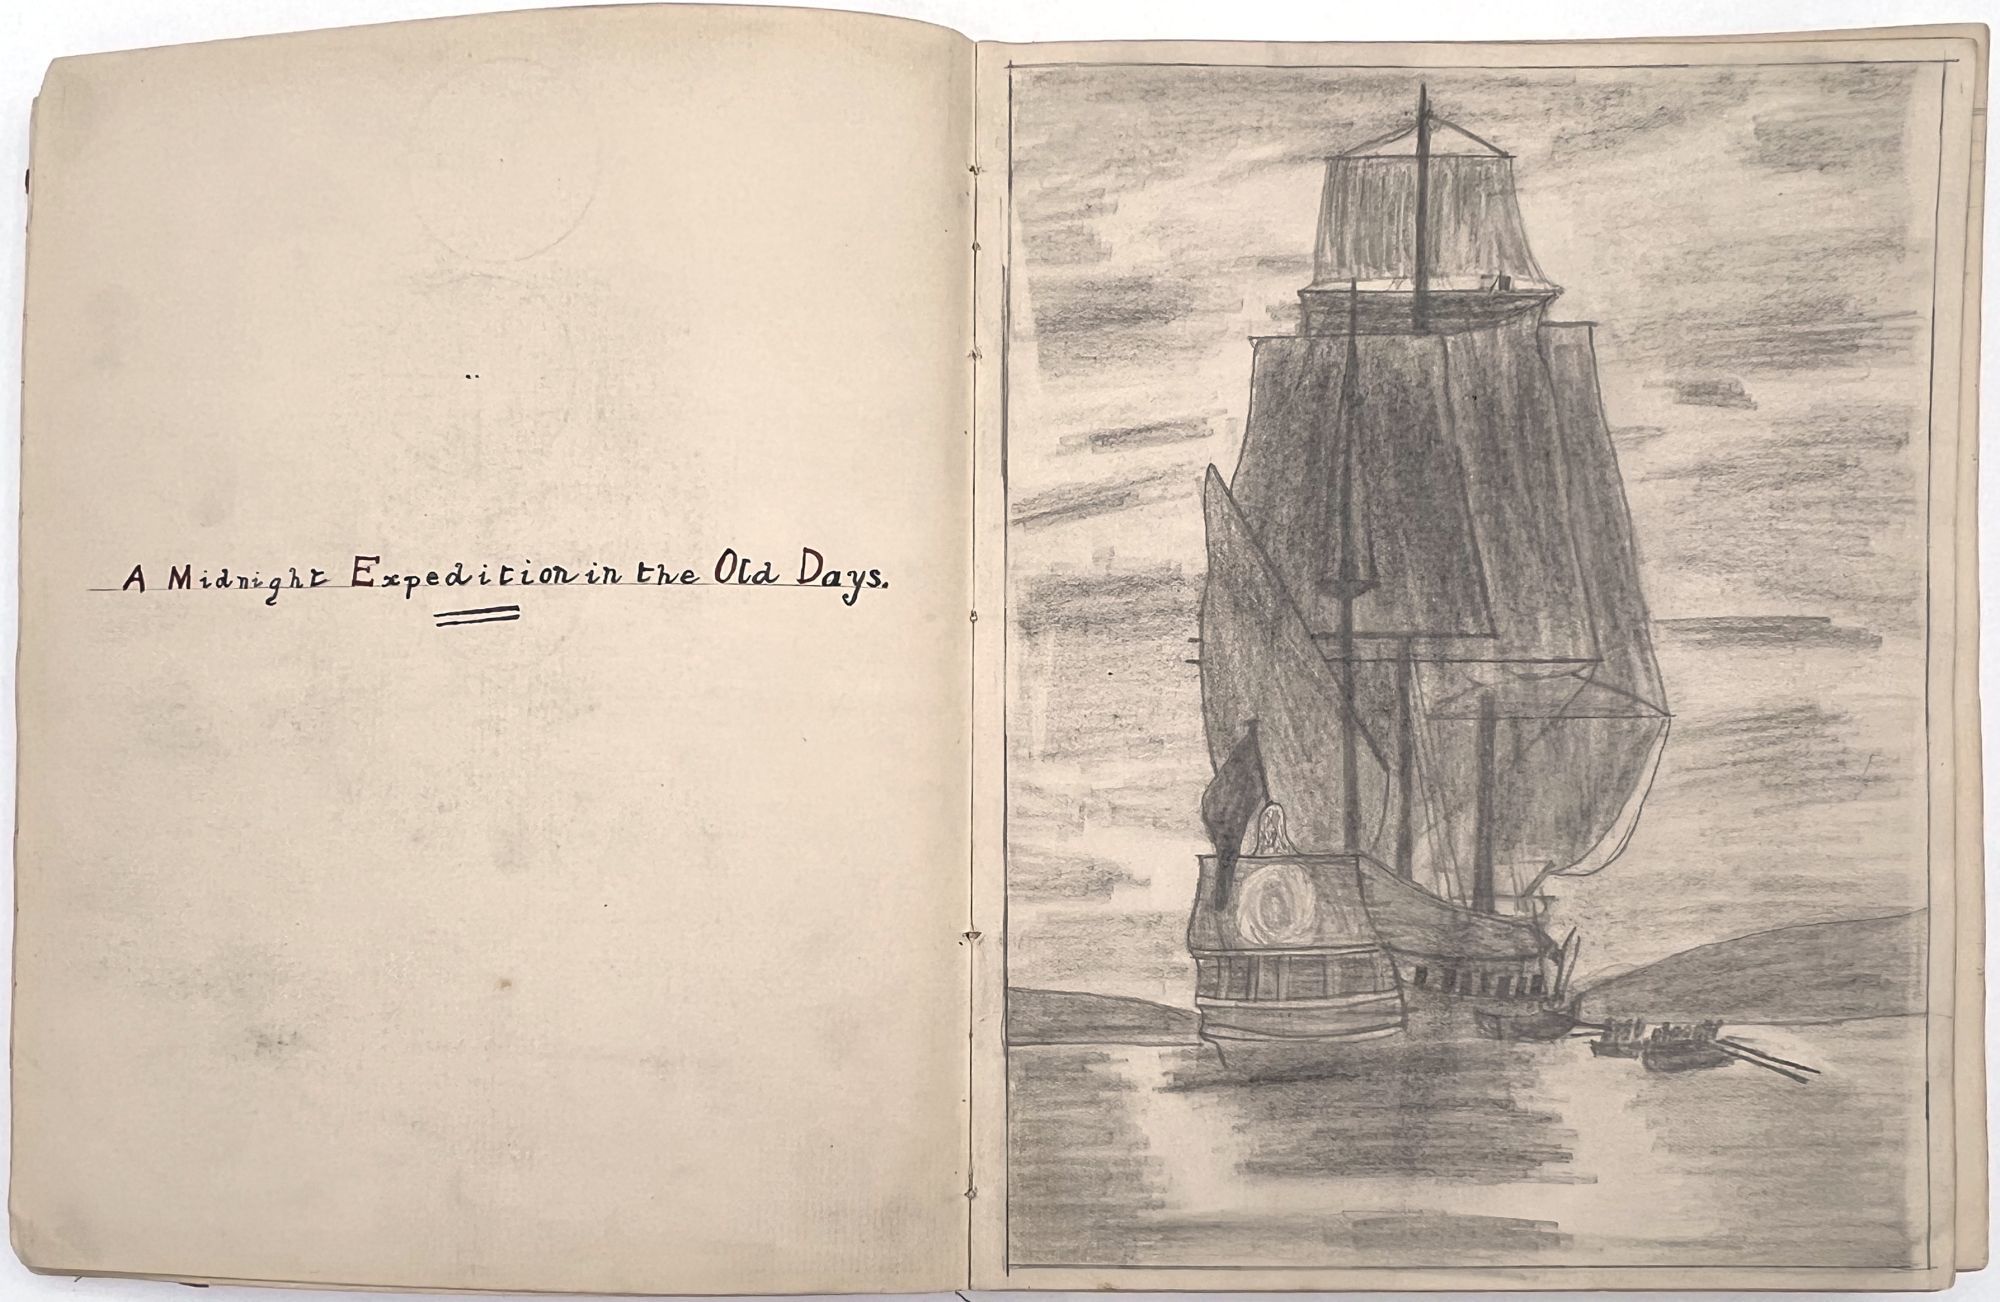 A Midnight Expedition in the Old Days.